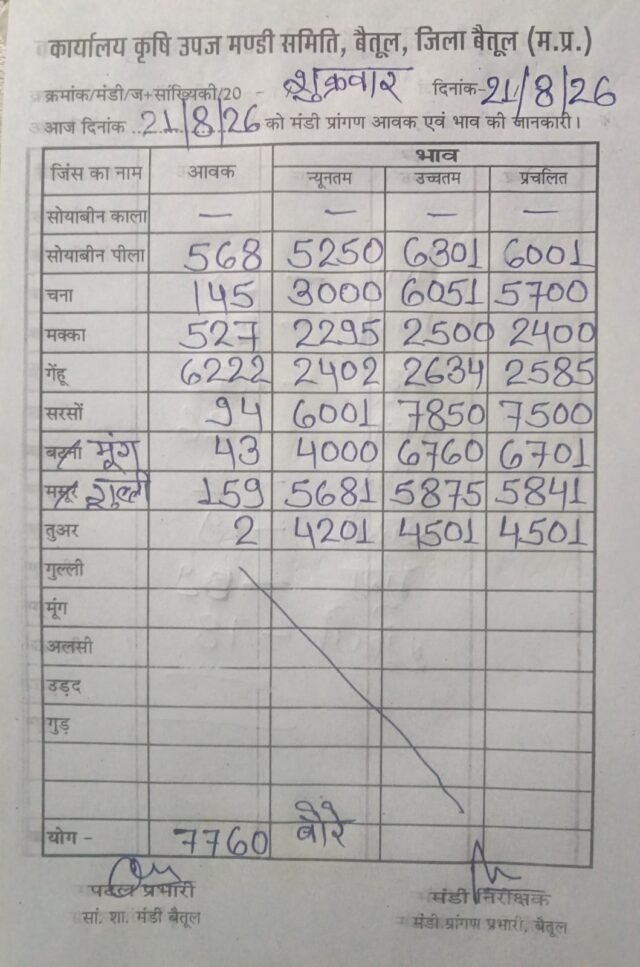 कार्यालय कृषि उपज मण्डी समिति, बैतूल, जिला बैतूल (म.प्र.)
क्रमांक/मंडी/ज+सांख्यिकी/20 - शुक्रवार दिनांक-21/8/26
आज दिनांक ..21/8/26 को मंडी प्रांगण आवक एवं भाव की जानकारी।
जिंस का नाम आवक भाव
न्यूनतम उच्चतम प्रचलित
सोयाबीन काला — — — —
सोयाबीन पीला 568 5250 6301 6001
चना 145 3000 6051 5700
मक्का 527 2295 2500 2400
गेंहू 6222 2402 2634 2585
सरसों 94 6001 7850 7500
बटना मूंग 43 4000 6760 6701
मसूर गुल्ली 159 5681 5875 5841
तुअर 2 4201 4501 4501
गुल्ली
मूंग
अलसी
उड़द
गुड़
योग - 7760 बोरे
पदेन प्रभारी मंडी निरीक्षक
सां. शा. मंडी बैतूल मंडी प्रांगण प्रभारी, बैतूल